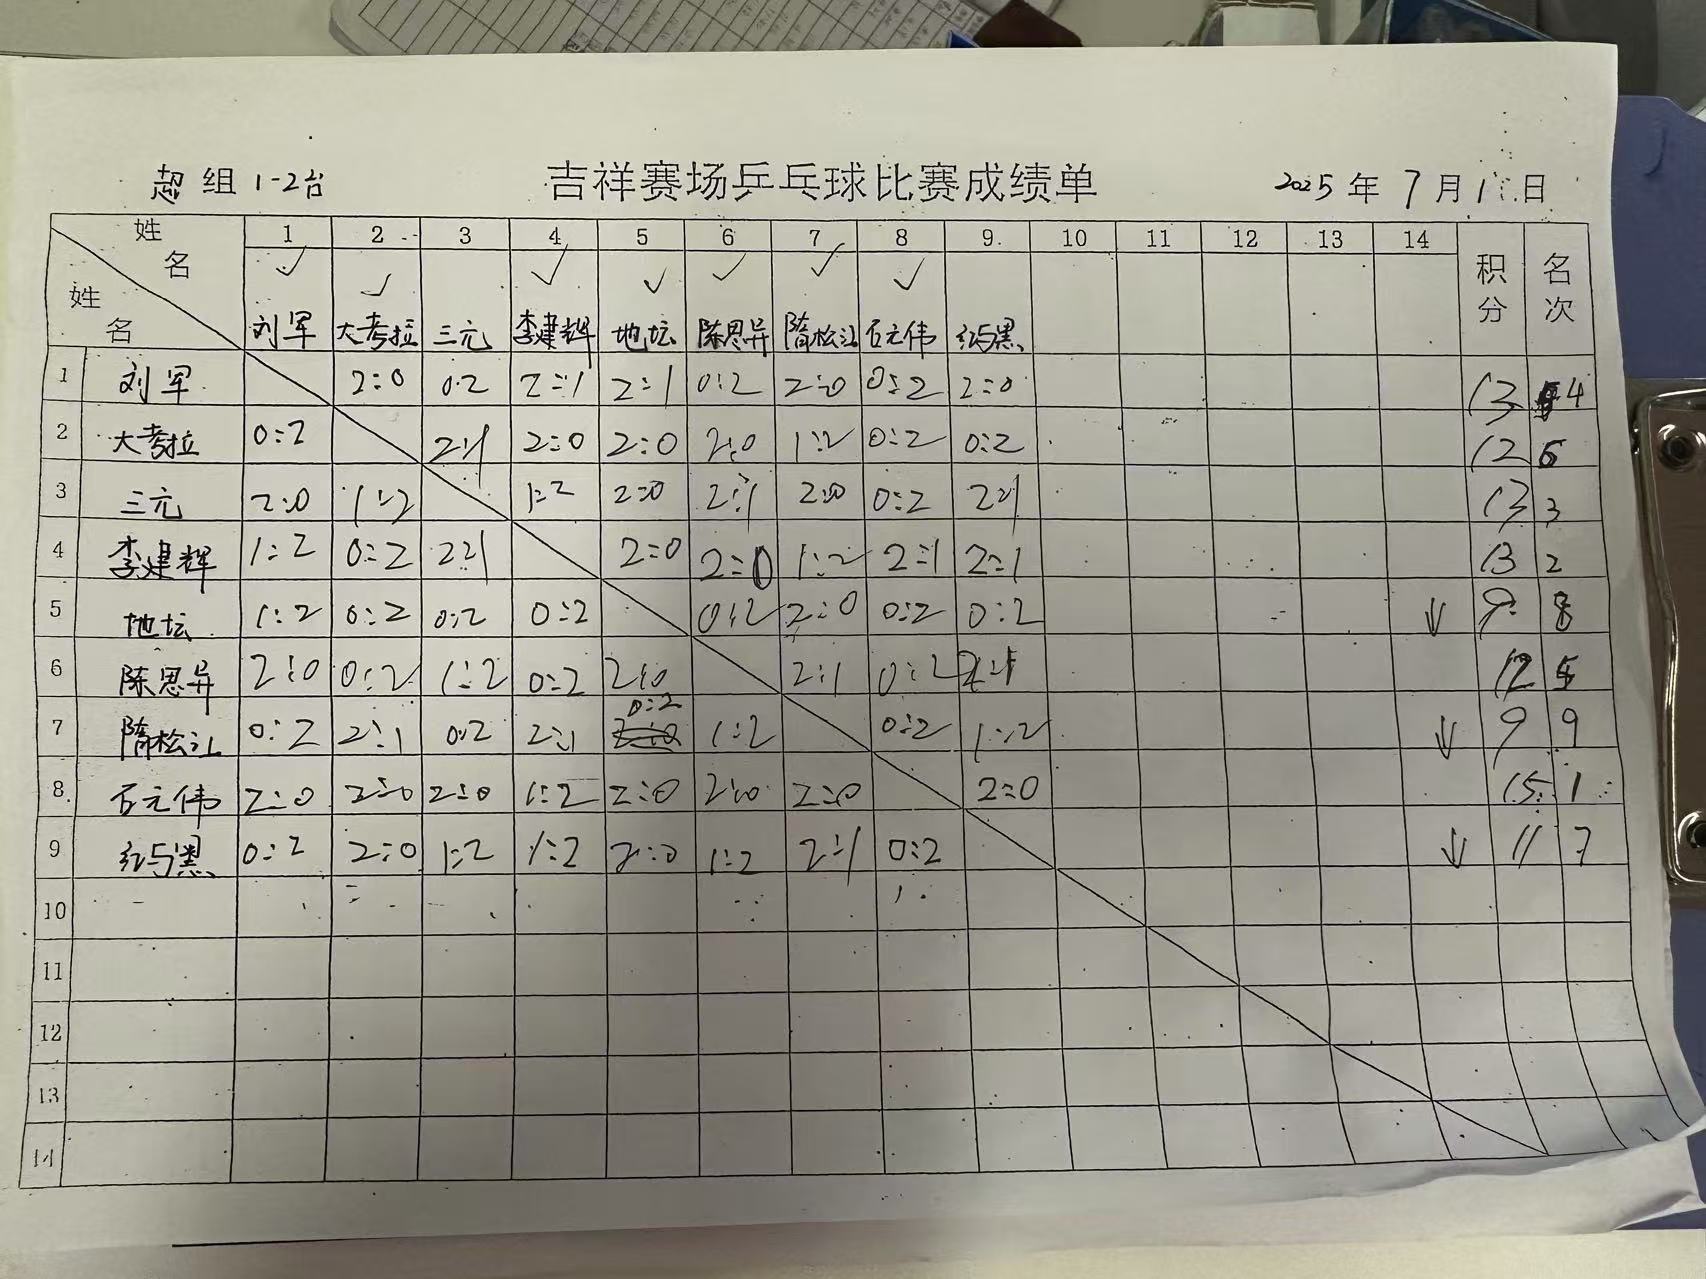 超 组 1-2台 吉祥赛场乒乓球比赛成绩单 2025 年 7 月 1 日
姓名 1 2 3 4 5 6 7 8 9 10 11 12 13 14 积分 名次
✓ ✓ ✓ ✓ ✓ ✓ ✓
姓名 刘军 大考拉 三元 李建辉 地坛 陈思异 隋松江 石元伟 红与黑
1 刘军 2:0 0:2 2:1 2:1 0:2 2:0 0:2 2:0 13 4
2 大考拉 0:2 2:1 2:0 2:0 2:0 1:2 0:2 0:2 12 6
3 三元 2:0 1:2 1:2 2:0 2:1 2:0 0:2 2:1 13 3
4 李建辉 1:2 0:2 2:1 2:0 2:0 1:2 2:1 2:1 13 2
5 地坛 1:2 0:2 0:2 0:2 0:2 2:0 0:2 0:2 ↓ 9 8
6 陈思异 2:0 0:2 1:2 0:2 2:0 2:1 0:2 2:1 12 5
7 隋松江 0:2 2:1 0:2 2:1 0:2 1:2 0:2 1:2 ↓ 9 9
8 石元伟 2:0 2:0 2:0 1:2 2:0 2:0 2:0 2:0 15 1
9 红与黑 0:2 2:0 1:2 1:2 2:0 1:2 2:1 0:2 ↓ 11 7
10
11
12
13
14